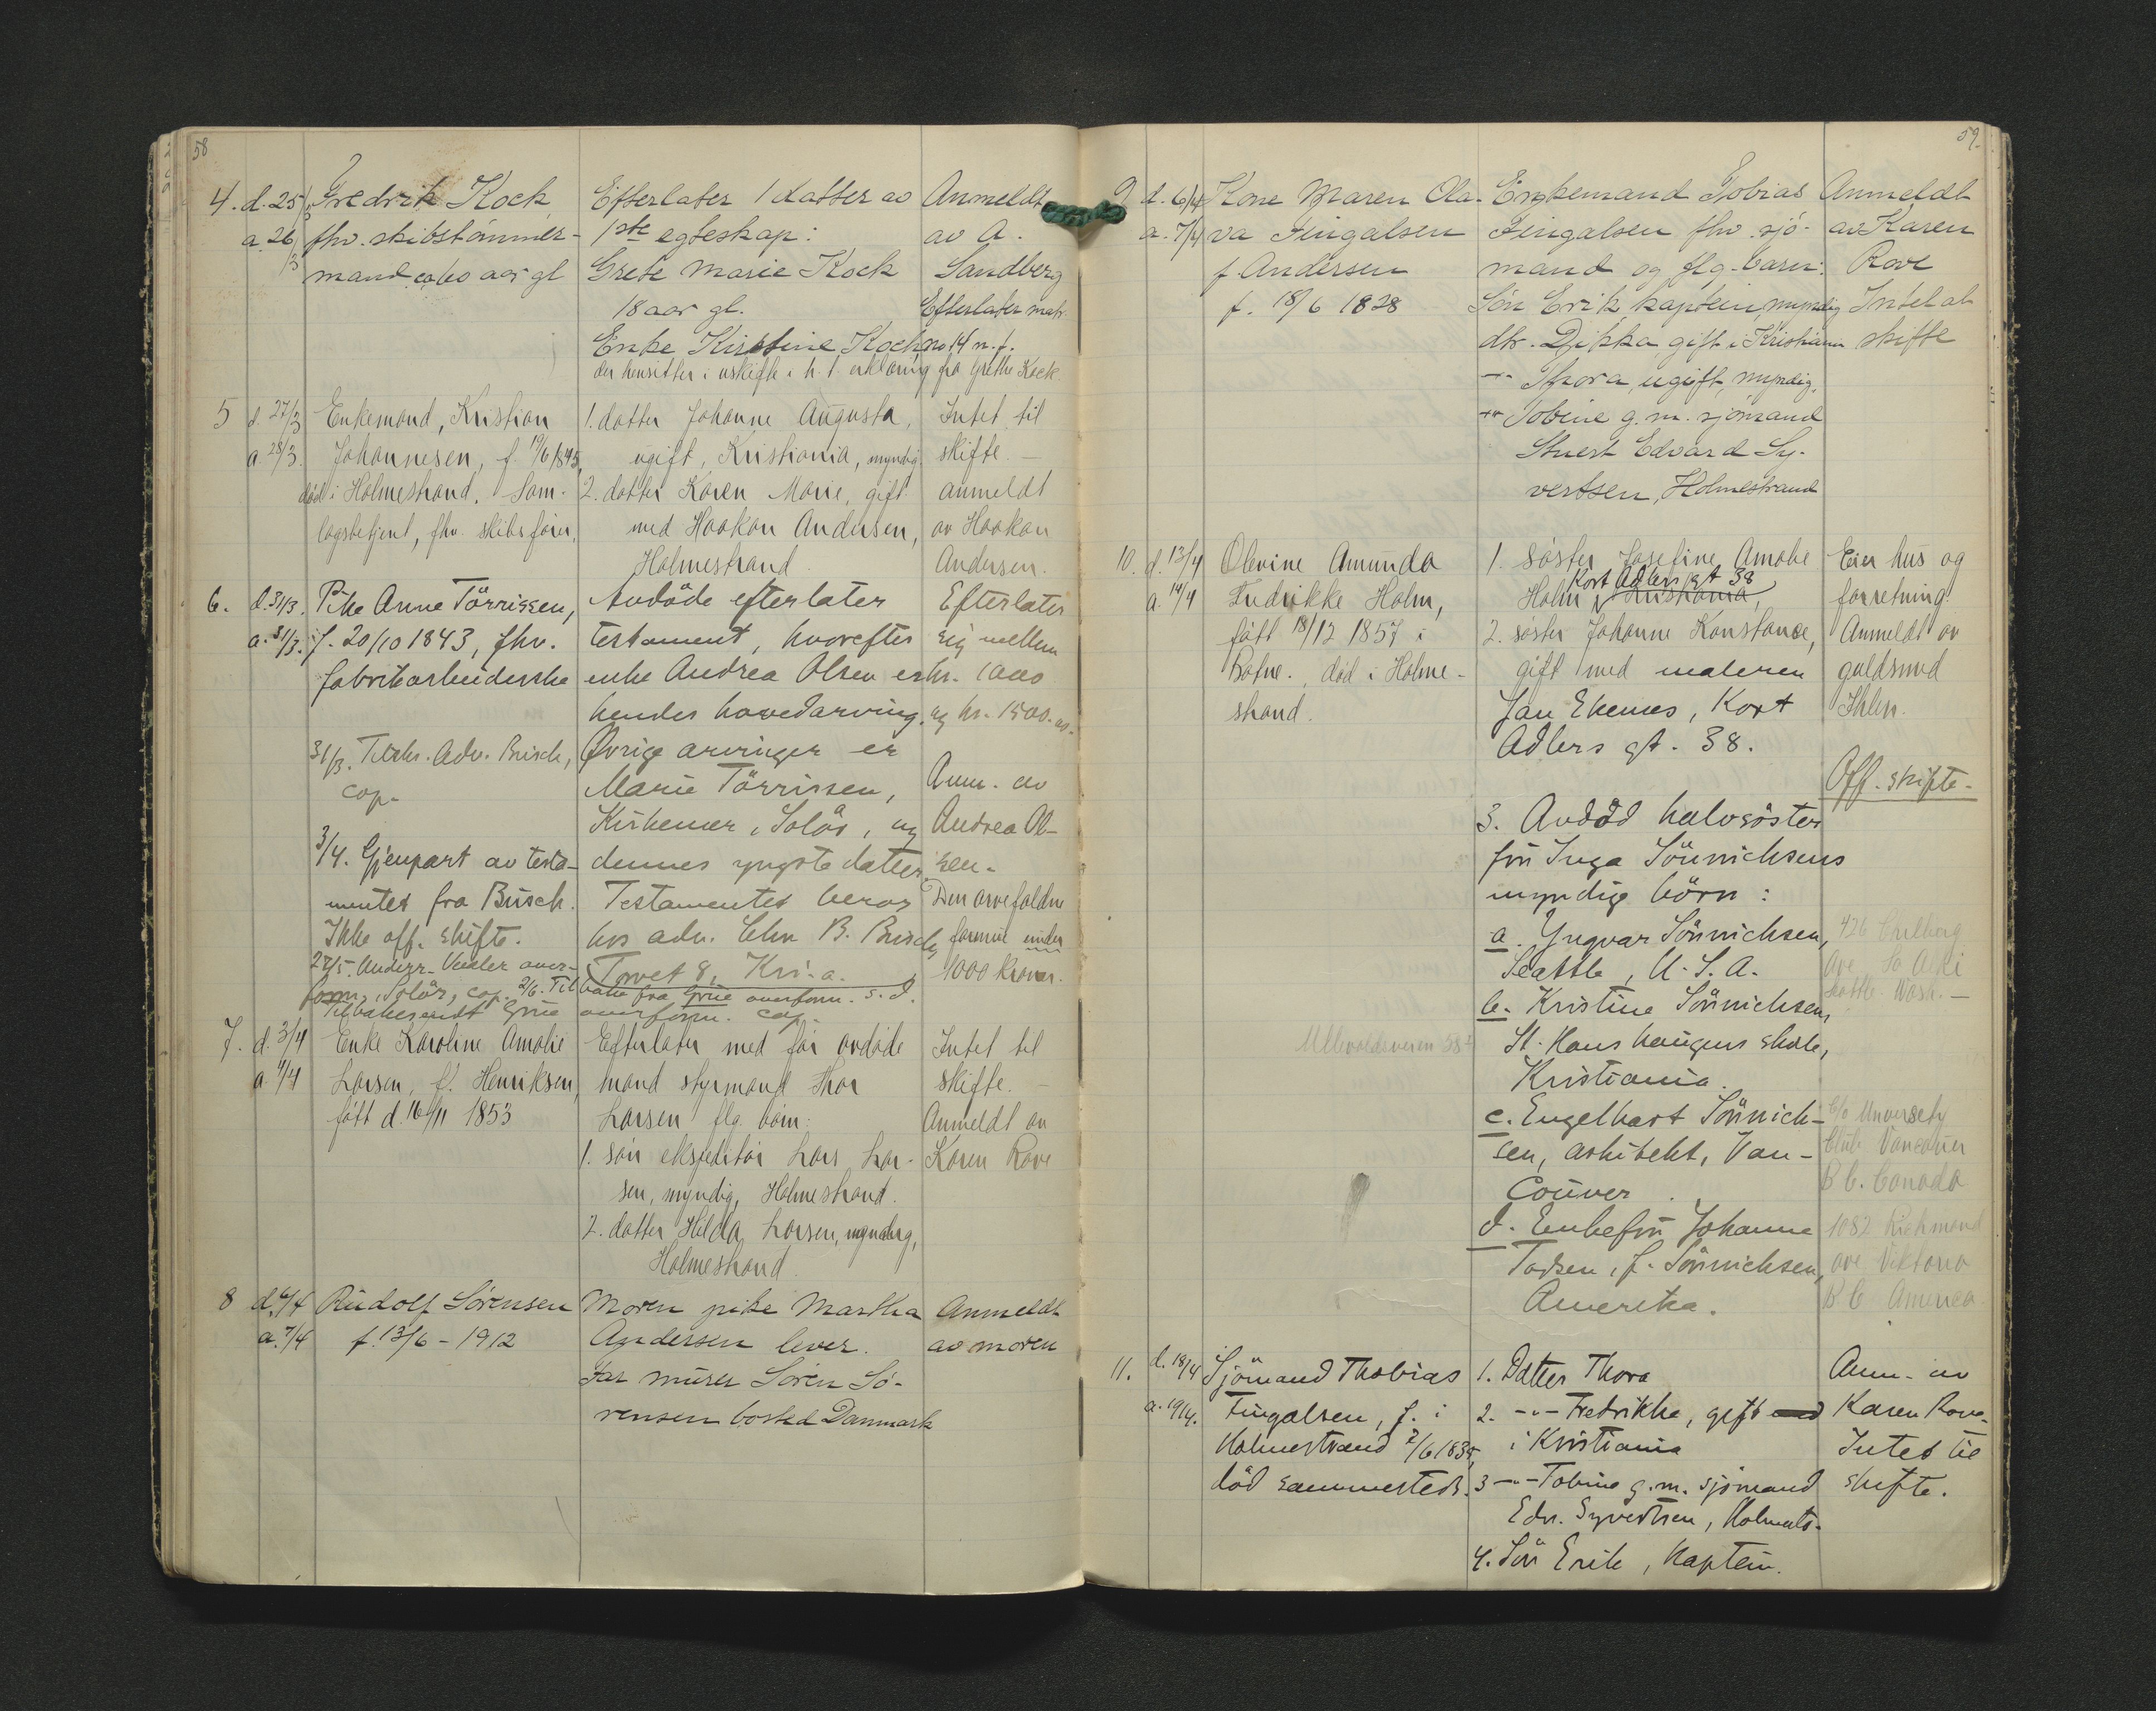 58
4. d. 25/3 Fredrik Kock Efterlater 1 datter av Anmeldt
a. 26/3 fhv. skibstømmer- 1ste egteskap: av A.
mand ca 60 aar gl Grete Marie Kock Sandberg
18 aar gl. Efterlater matr.
Enke Kirstine Koch no 14 n.f.
der hensitter i uskifte i h. t. erklæring fra Grethe Kock
5 d. 27/3 Enkemand, Kristian 1. datter Johanne Augusta, Intet til
a. 28/3. Johannesen, f. 19/6 1845, ugift, Kristiania, myndig skifte. —
död i Holmestrand. Sam- 2. datter Karen Marie, gift anmeldt
lagsbetjent, fhv. skibsfører, med Haakon Andersen, av Haakon
Holmestrand. Andersen.
6. d. 31/3. Pike Anne Törrissen, Avdöde efterlater Efterlater
a. 31/3. f. 20/10 1843, fhv. testament, hvorefter sig mellem
fabrikarbeiderske enke Andrea Olsen er kr. 1000
hendes hovedarving. og kr. 1500.
31/3. Tilskr. Adv. Busch, Øvrige arvinger er
cop. Marie Törrissen, Anm. av
Kirkenær, Solör, og Andrea Ol-
3/4. Gjenpart av testa- dennes yngste datter. sen.
mentet fra Busch. Testamentet beror Den arvefaldne
Ikke off. skifte. hos adv. Chr B. Busch, formue under
27/5. Anderr. Veiler over- Torvet 8, Kr.a. 1000 kroner.
form, Solör, cop. 2/6. Tilbake fra Grue overform. s. d.
Tilbakesendt Grue overform. cop.
7. d. 3/4 Enke Karoline Amalie Efterlater med før avdøde Intet til
a. 4/4 Larsen, f. Henriksen, mand styrmand Thor skifte. —
født d. 16/11 1853 Larsen flg. børn: Anmeldt av
1. søn ekspeditør Lars Lar- Karen Rove
sen, myndig, Holmestrand.
2. datter Hilda Larsen, myndig,
Holmestrand.
8 d. 4/4 Rudolf Sörensen Moren pike Martha Anmeldt
a. 7/4 f. 13/6 - 1912 Andersen lever. av moren
Far murer Sören Sö-
rensen bosted Danmark
59.
9 d. 6/4 Kone Maren Ola- Enkemand Tobias Anmeldt
a. 7/4 va Fingalsen Fingalsen fhv. sjö- av Karen
f. Andersen mand og flg. barn: Rove
f. 18/6 1828 Sön Erik, kaptein, myndig Intet at
dtr. Dikka gift i Kristiania skifte
-"- Thora, ugift, myndig.
-"- Tobine g. m. sjömand
Edvard Sy-
vertsen, Holmestrand
10. d. 13/4 Olevine Amunda 1. Søster Josefine Amalie Eier hus og
Kort Adlers gt 38
a. 14/4 Fredrikke Holm, Holm, Kristiania, forretning.
født 18/12 1857 i 2. søster Johanne Konstanse, Anmeldt av
Botne. død i Holme- gift med maleren guldsmed
strand. Jan Ekenes, Kort Ihlen.
Adlers gt. 38.
Off. skifte.
3. Avdöd halvsöster
fru Inga Sönnichsens
myndige börn:
a. Yngvar Sönnichsen, 426
Seattle, U.S.A. Ave So Alki
b. Kristine Sönnichsen, Seattle. Wash. —
Ullevoldsveien 58 St. Hans haugens skole,
Kristiania.
c. Engelhart Sönnich- C/o University
sen, arkitekt, Van- Club Vancouver
couver. B C. Canada
d. Enkefru Johanne 1082 Richmond
Todsen, f. Sönnichsen, ave Viktoria
Amerika. B C America
11. d. 18/4 Sjömand Thobias 1. Datter Thora Anm. av
a. 19/4. Fingalsen, f. i 2. -"- Fredrikke, gift med Karen Rove.
Holmestrand 2/6 1835, i Kristiania Intet til
död sammesteds. 3 -"- Tobine g. m. sjömand skifte.
Edv. Syvertsen, Holmestr.
4. Sön Erik, kaptein.